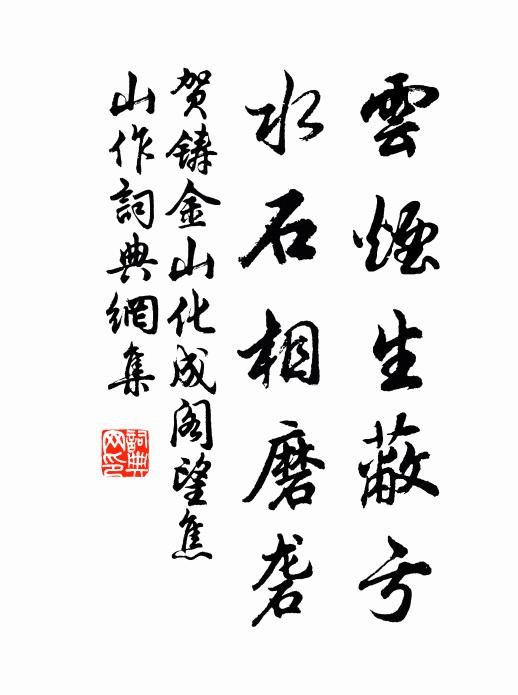 雲煙生蔽亏
水石相磨砻
贺铸金山化成阁望焦
山作詞典網集
詞典
网印